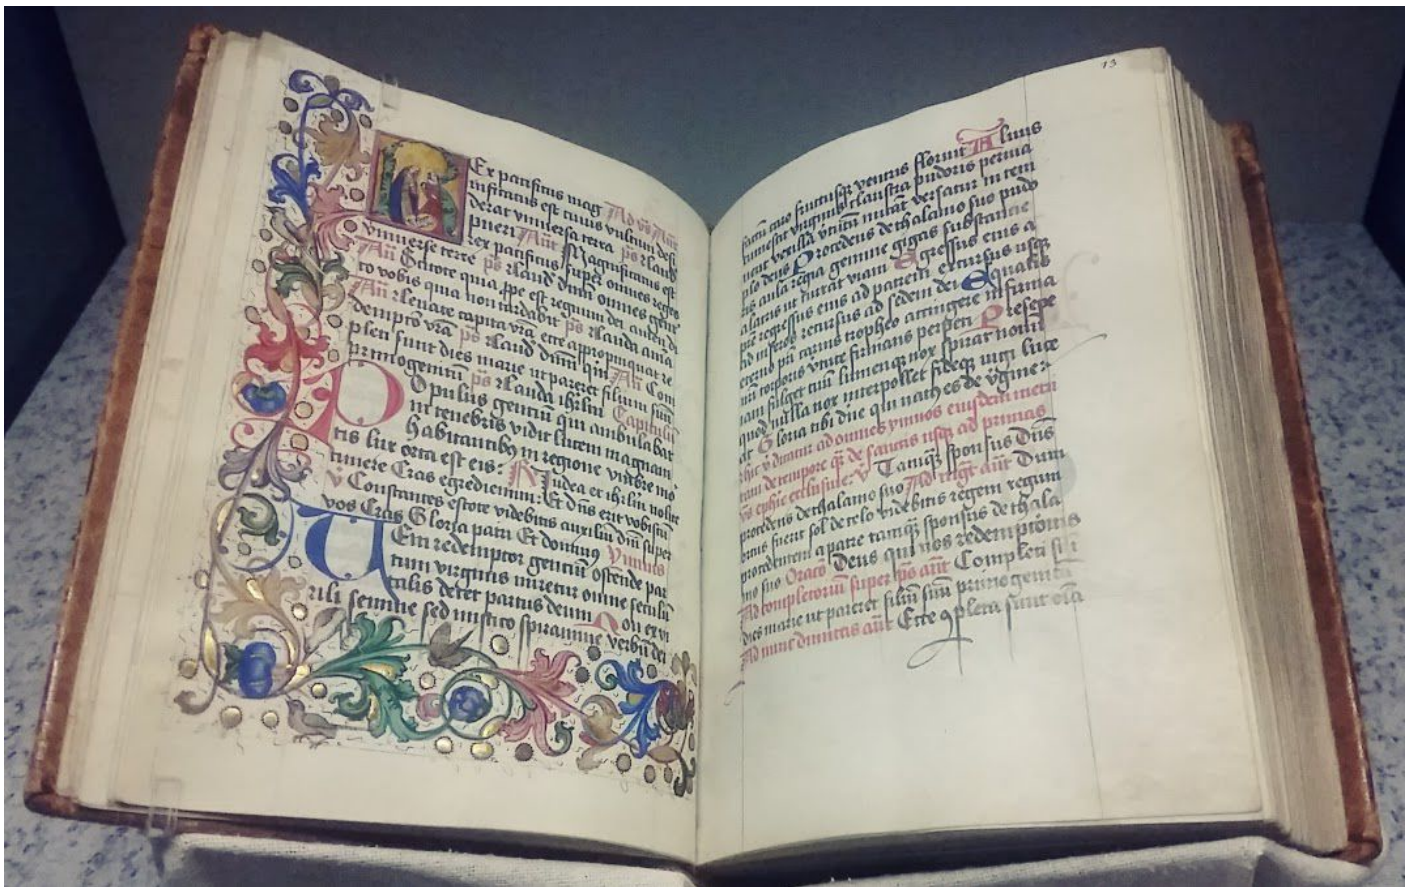 Rex pacificus mag Ad vs Añt
nificatus est cuius vultum desi
derat vniuersa terra ps
pueri Añt Magnificatus est
rex pacificus super omnes reges
vniuerse terre ps dnm omnes gent
Añt Scitote quia ꝓpe est regnum dei amen di
co vobis quia non tardabit ps aīa
Añt leuate capita vrā ecce appropinquat re
demptō vrā ps dnm qm Añ Com
pleti sunt dies marie ut pareret filium suū
primogenitū ps ihrlm Capitulū
Populus gentiū qui ambulabat
in tenebris vidit lucem magnam
habitantibꝰ in regione vmbre mo
tis lux orta est eis: R Iudea et ihrlm nolite
timere Cras egrediemini: Et dn̄s erit vobiscū
v̄ Constantes estote videbitis auxiliū dnī super
vos Cras Gloria patri Et dominꝰ Ymnus
Veni redemptor gentiū ostende par
tum virginis miretur omne seculū
talis decet partus deum Non ex vi
rili semine sed mistico spiramine verbū dei
13
factū caro fructusqꝫ ventris floruit Aluus
tumescit virginis claustra pudoris perma
nent vexilla virtutū micāt versatur in tem
plo deus Procedens de thalamo suo pudo
ris aula regia gemine gigas substantie
alacris ut currat viam Egressus eius a
patre regressus eius ad patrem excursus usqꝫ
ad inferos recursus ad sedem dei Equalis
eterno patri carnis tropheo accingere infirma
nrī corporis virtute firmans perpeti Presepe
iam fulget tuū lumenqꝫ nox spirat nouū
quod nulla nox interpollet fideqꝫ iugi luce
at Gloria tibi dn̄e qui natus es de v̄gine
hic v̄ dicatur ad omnes ymnos eiusdem metri
tam de tempore qꝫ de sanctis usqꝫ ad primas
vs ephie exclusiue: v̄ Tamqꝫ sponsus Dn̄s
procedens de thalamo suo Ad mgt añt Dum
ortus fuerit sol de celo videbitis regem regum
procedentem a patre tamqꝫ sponsus de thala
mo suo Oracō Deus qui nos redemptionis
Ad completoriū super ps añt Completi sūt
dies marie ut pareret filiū suū primogenitū
Ad nunc dimittis añt Ecce ꝯpleta sunt oīa